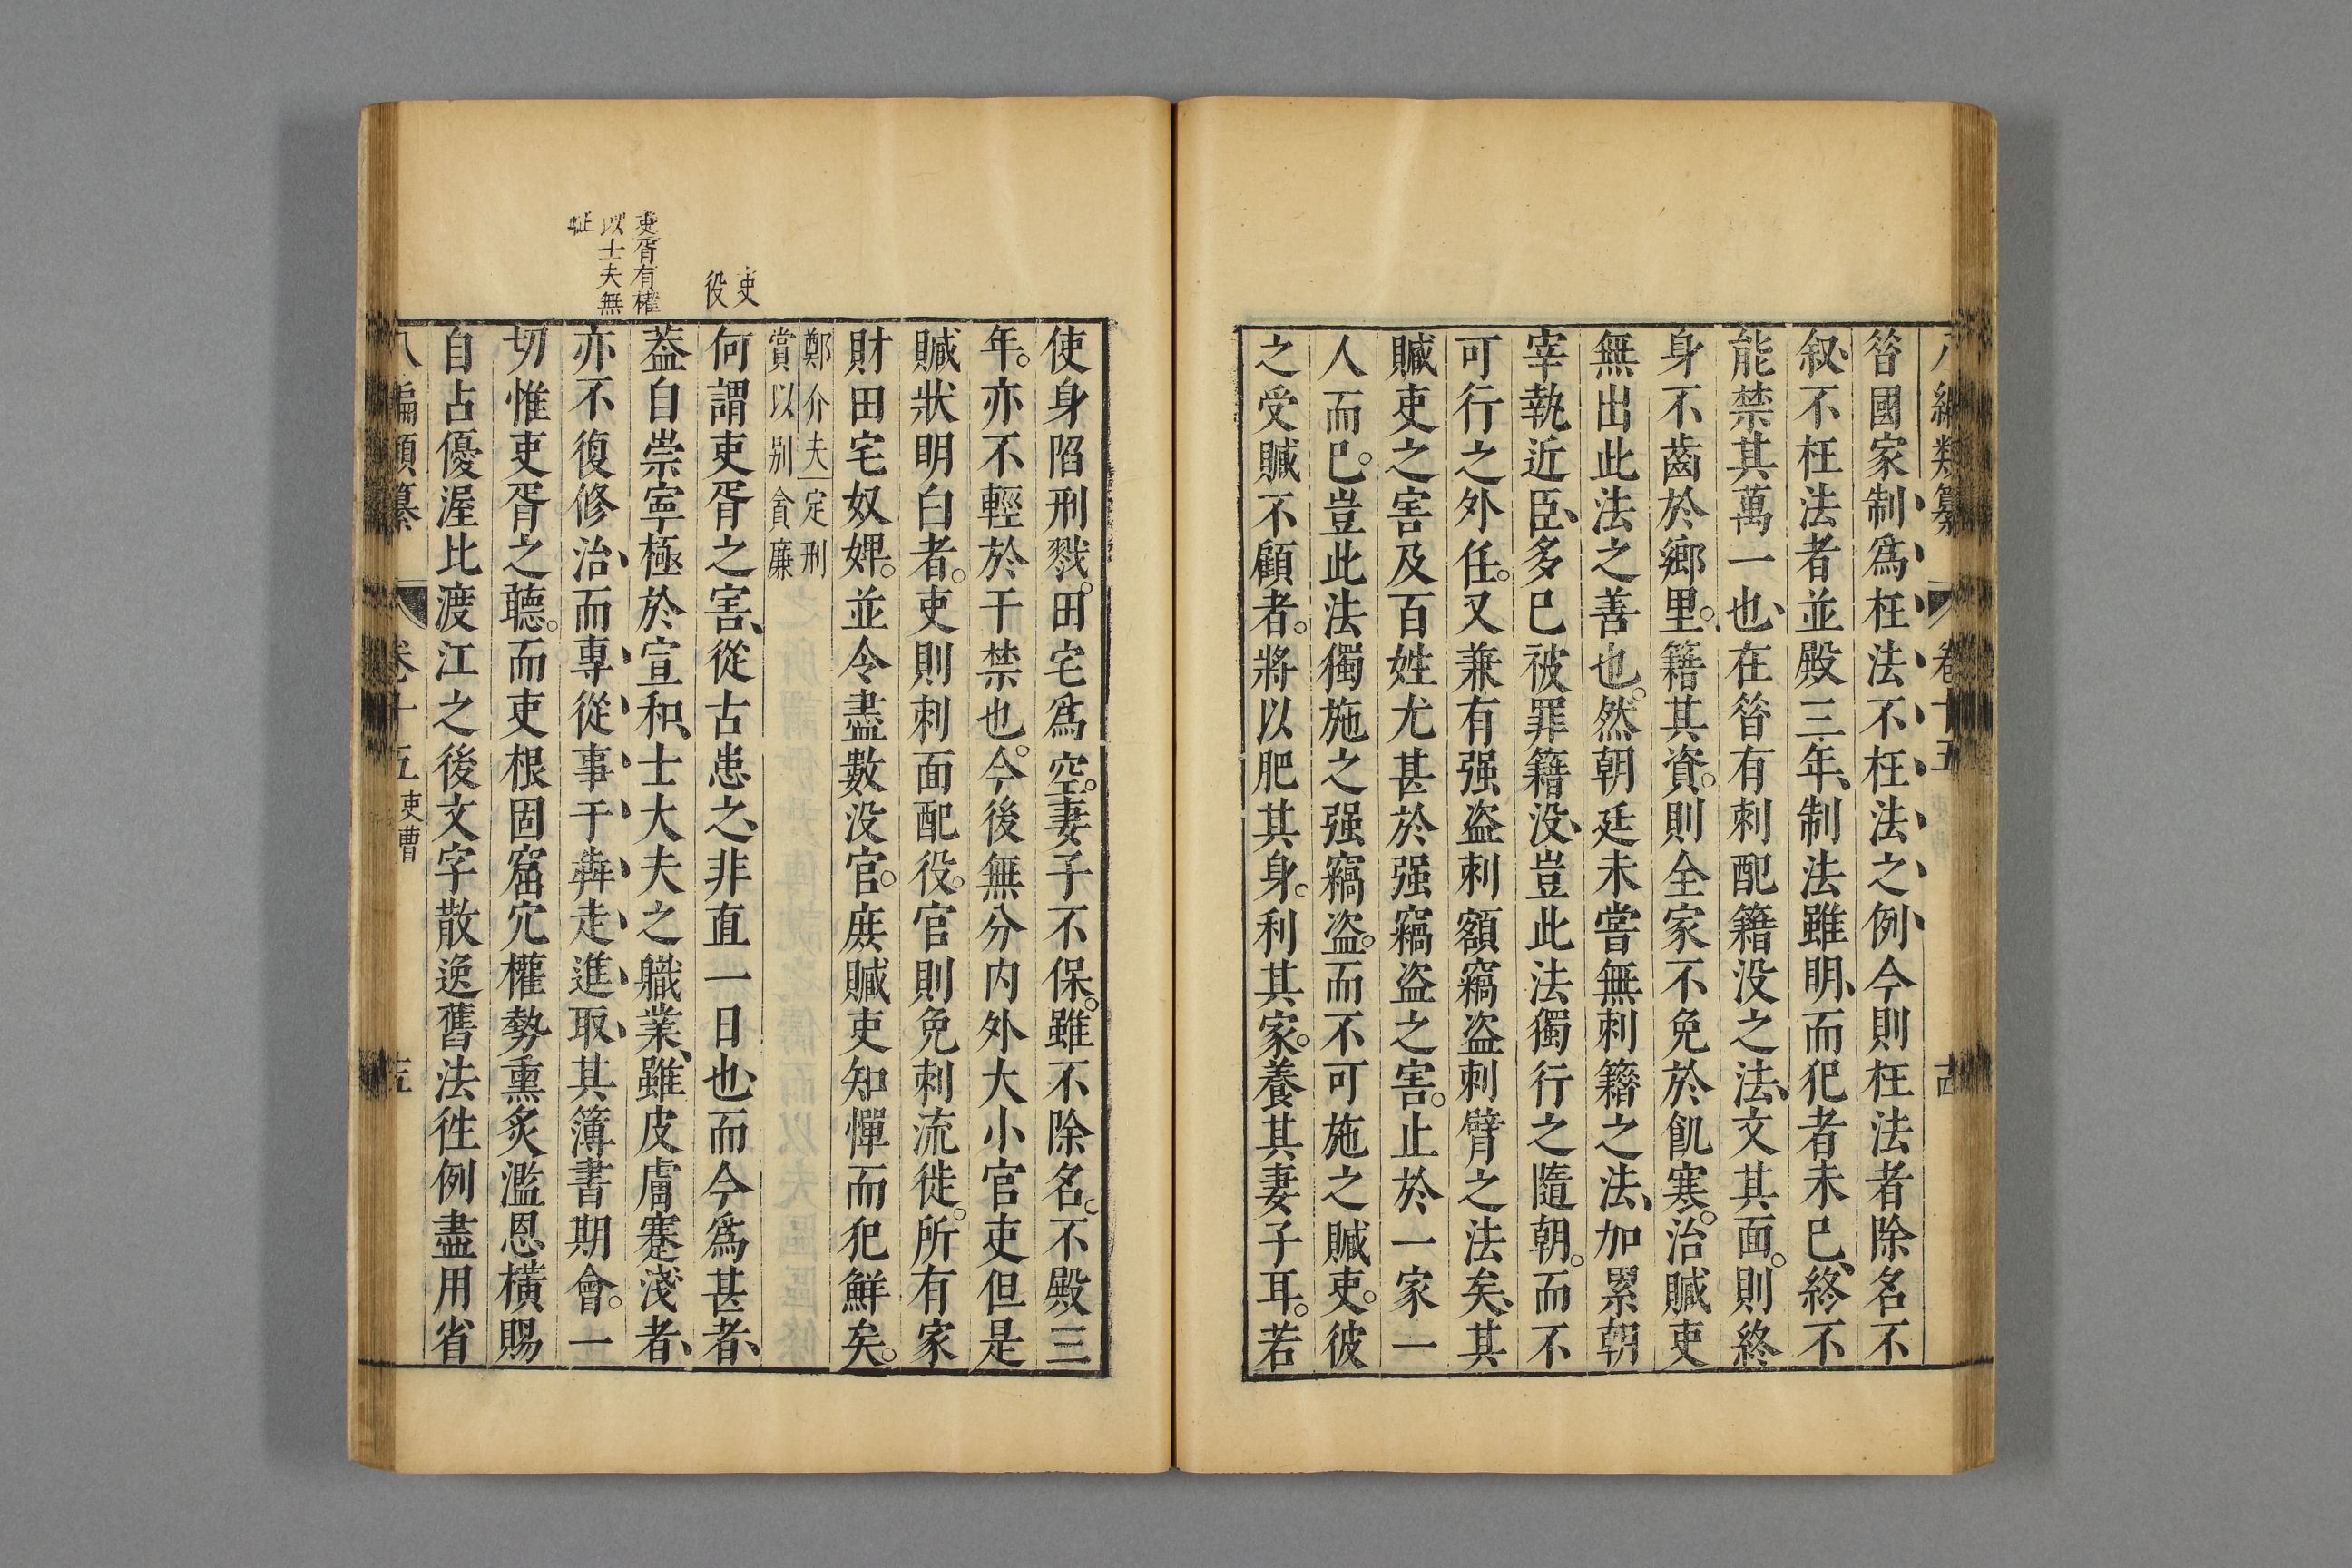 八編類纂 卷十五
昝國家制爲枉法不枉法之例今則枉法者除名不
叙不枉法者並殿三年制法雖明而犯者未已終不
能禁其萬一也在昝有刺配籍没之法文其面則終
身不齒於鄉里籍其資則全家不免於飢寒治贓吏
無出此法之善也然朝廷未嘗無刺籍之法加累朝
宰執近臣多已被罪籍没豈此法獨行之隨朝而不
可行之外任又兼有强盗刺額竊盗刺臂之法矣其
贓吏之害及百姓尤甚於强竊盗之害止於一家一
人而已豈此法獨施之强竊盗而不可施之贓吏彼
之受贓不顧者將以肥其身利其家養其妻子耳若
使身陷刑戮田宅爲空妻子不保雖不除名不殿三
年亦不輕於干禁也今後無分内外大小官吏但是
贓狀明白者吏則刺面配役官則免刺流徙所有家
財田宅奴婢並令盡數没官庶贓吏知憚而犯鮮矣
鄭介夫一定刑
賞以别貪廉
吏
役
何謂吏胥之害從古患之非直一日也而今爲甚者
蓋自崇寧極於宣和士大夫之職業雖皮膚蹇淺者
吏胥有權
以士夫無
亦不復修治而專從事于犇走進取其簿書期會一
切惟吏胥之聽而吏根固窟穴權勢熏炙濫恩橫賜
自占優渥比渡江之後文字散逸舊法徃例盡用省
八編類纂 卷十五 吏曹